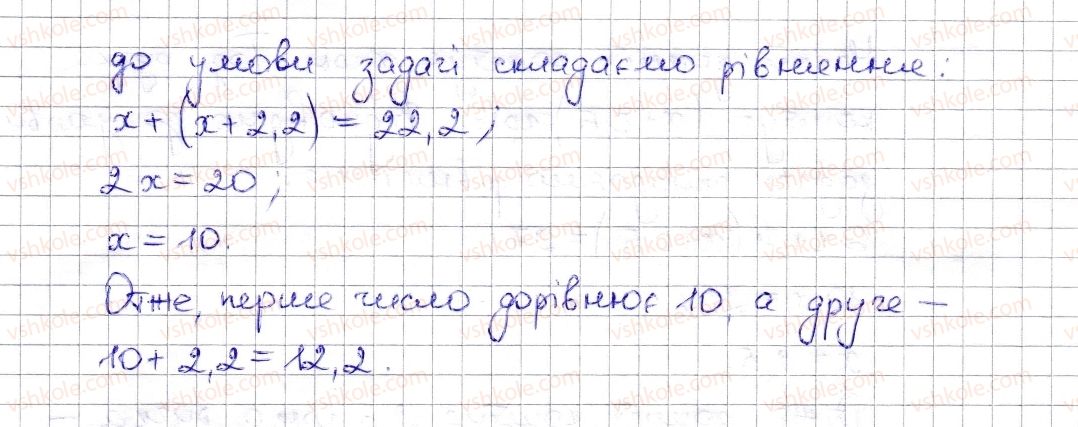 до умови задачі складаємо рівняння:
x + (x + 2,2) = 22,2;
2x = 20;
x = 10.
Отже, перше число дорівнює 10, а друге –
10 + 2,2 = 12,2.